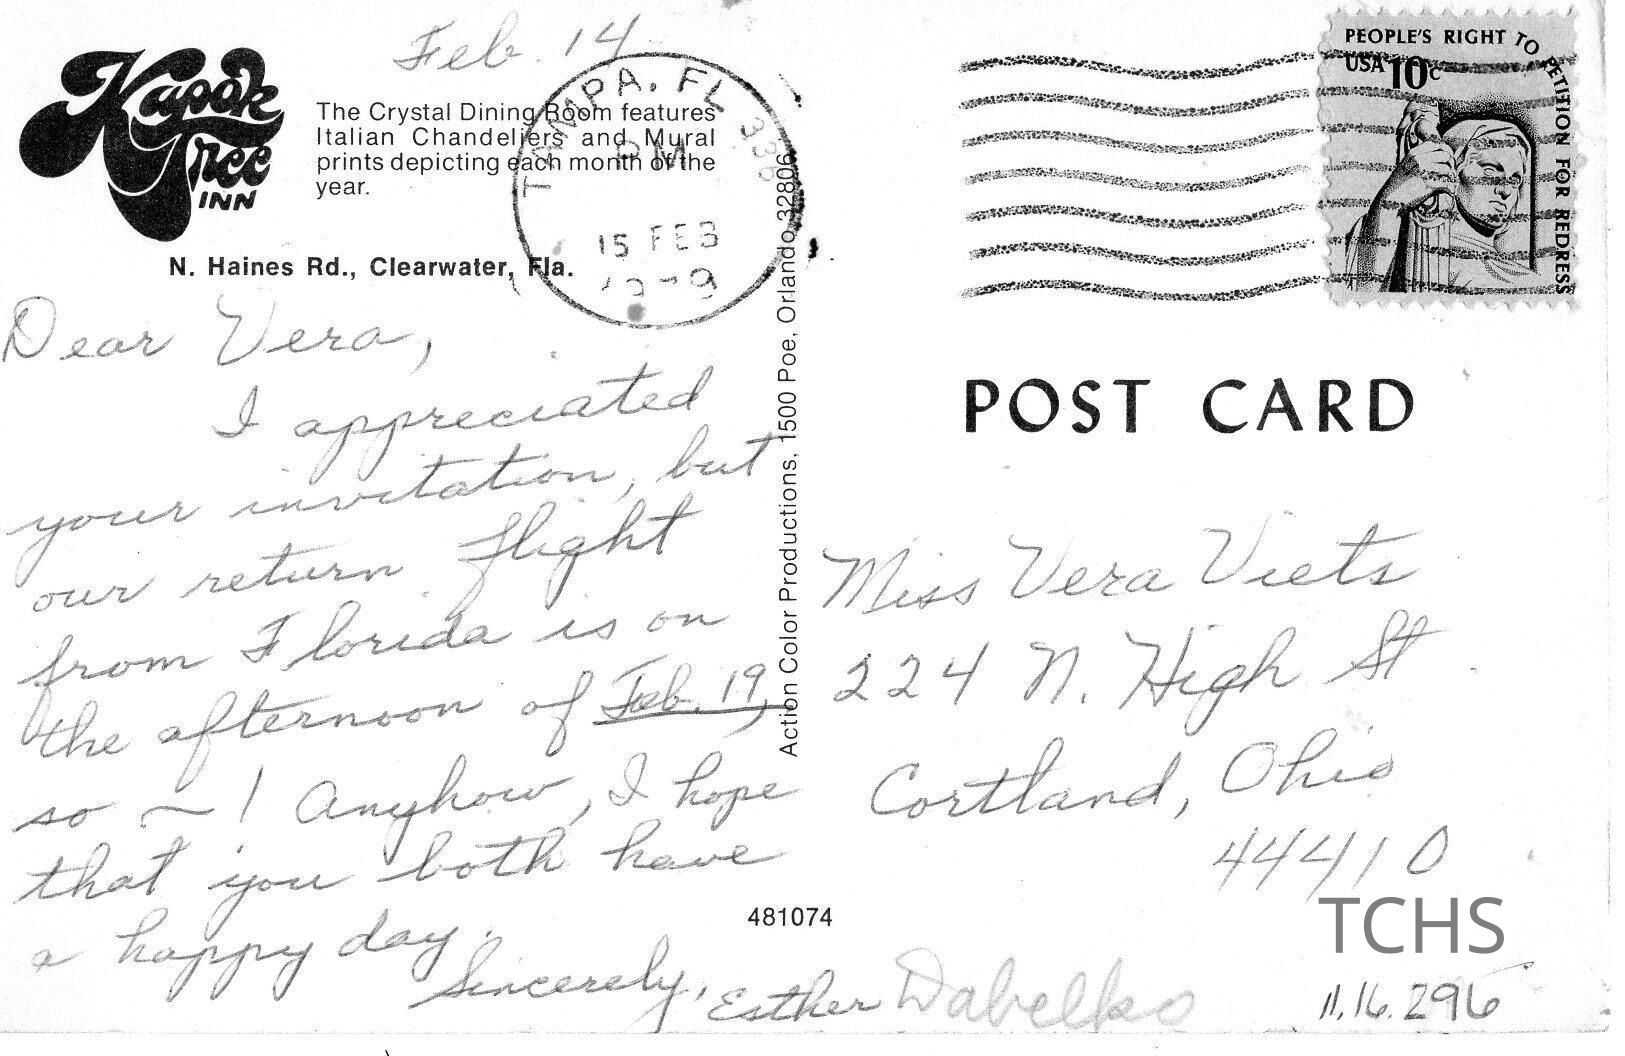 Feb. 14
Kapok
Tree
INN
The Crystal Dining Room features
Italian Chandeliers and Mural
prints depicting each month of the
year.
N. Haines Rd., Clearwater, Fla.
TAMPA, FL 336
PM
15 FEB
1979
PEOPLE'S RIGHT TO PETITION FOR REDRESS
USA 10c
Dear Vera,
I appreciated
your invitation, but
our return flight
from Florida is on
the afternoon of Feb. 19,
so ~! Anyhow, I hope
that you both have
a happy day.
Sincerely, Esther Dabelko
Action Color Productions, 1500 Poe, Orlando 32806
481074
POST CARD
Miss Vera Viets
224 N. High St.
Cortland, Ohio
44410
TCHS
11.16.296